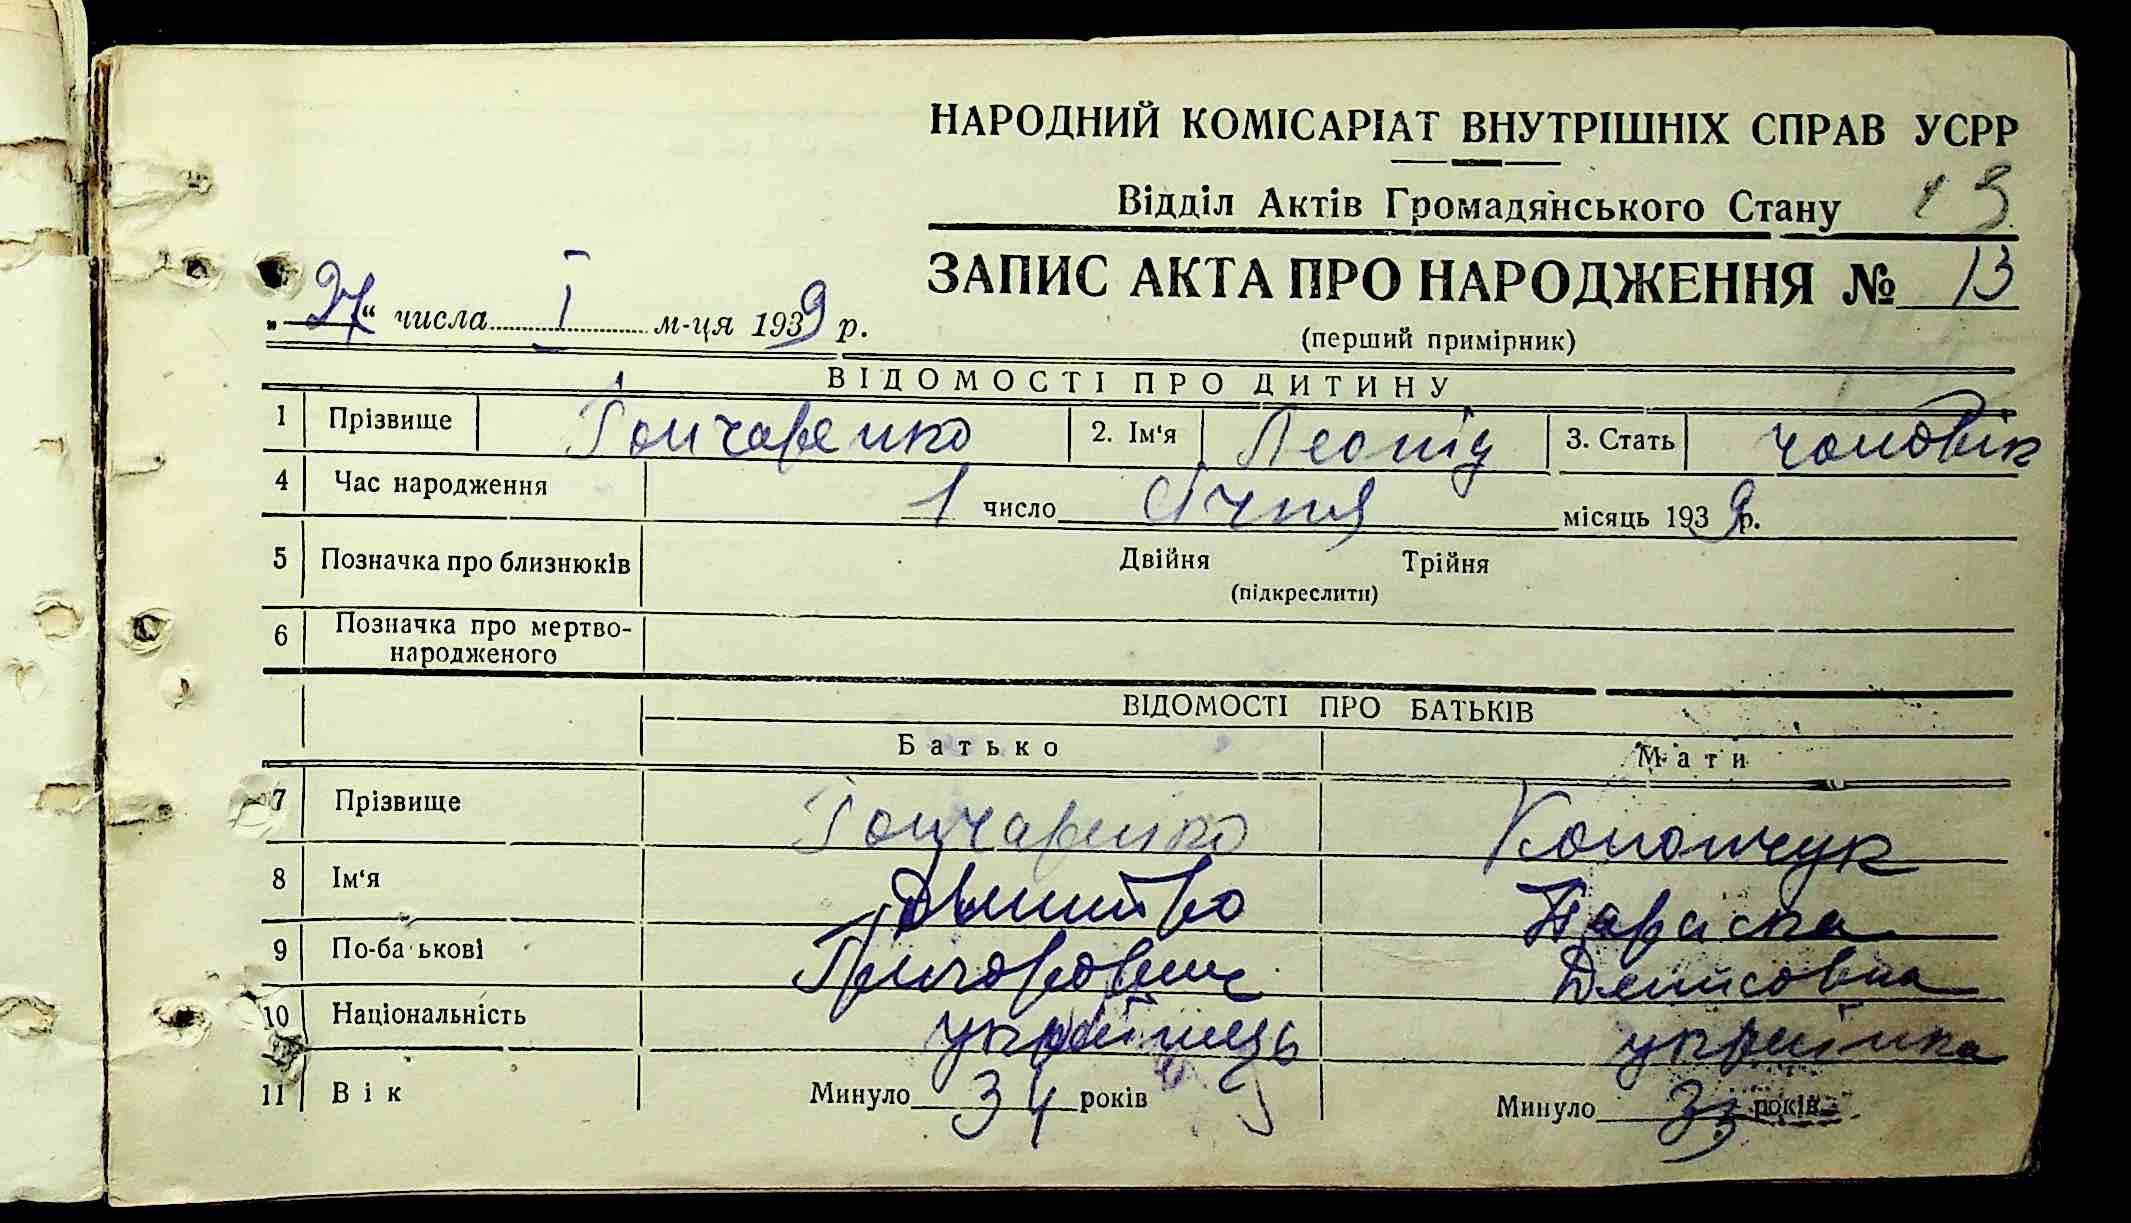 НАРОДНИЙ КОМІСАРІАТ ВНУТРІШНІХ СПРАВ УСРР
Відділ Актів Громадянського Стану 13
ЗАПИС АКТА ПРО НАРОДЖЕННЯ № 13
„27“ числа I м-ця 1939 р.
(перший примірник)
ВІДОМОСТІ ПРО ДИТИНУ
1 Прізвище Гончаренко 2. Ім‘я Леонід 3. Стать чоловік
4 Час народження 1 число Січня місяць 1939 р.
5 Позначка про близнюків Двійня Трійня
(підкреслити)
6 Позначка про мертво-
народженого
ВІДОМОСТІ ПРО БАТЬКІВ
Батько Мати
7 Прізвище Гончаренко
8 Ім‘я Дмитро Параска
9 По-батькові Григорович Денисовна
10 Національність українець українка
11 Вік Минуло 34 років Минуло 33 років